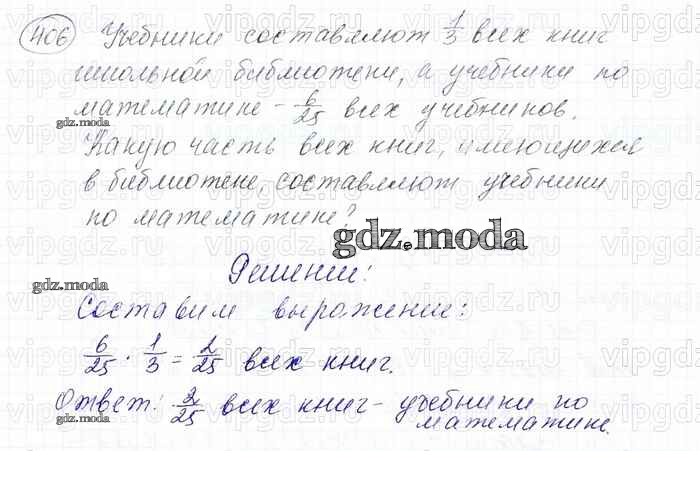 406 Учебники составляют 1/3 всех книг
школьной библиотеки, а учебники по
математике - 6/25 всех учебников.
gdz.moda
Какую часть всех книг, имеющихся
в библиотеке, составляют учебники
по математике?
gdz.moda
Решение:
gdz.moda
Составим выражение:
6/25 · 1/3 = 2/25 всех книг.
Ответ: 2/25 всех книг - учебники по
gdz.moda
математике.